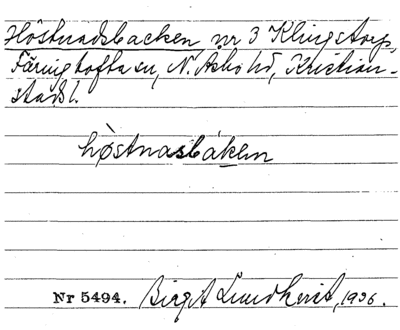 Höstnadsbacken nr 3 Klingstorp,
Färingtofta sn, N. Åsbo hd, Kristian-
stads l.
hòstnasbáken
Nr 5494. Birgit Lundkvist, 1936.